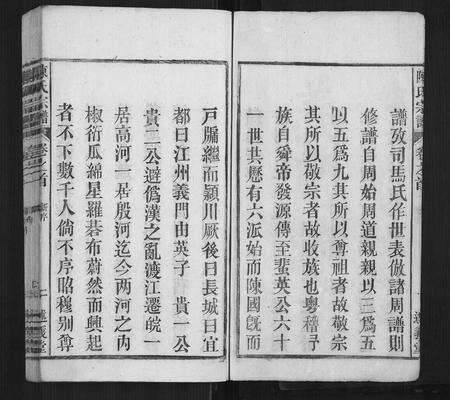 陳氏宗譜
卷之首
譜攷司馬氏作世表倣諸周譜則
修譜自周始周道親親以三爲五
以五爲九其所以尊祖者故敬宗
其所以敬宗者故收族也粵稽子
族自舜帝發源傳至蜚英公六十
一世其歷有六派始而陳國旣而
戸牖繼而潁川厥後曰長城曰宜
都曰江州義門由英子 貴一公
貴二公避僞漢之亂渡江遷皖一
居高河一居殷河迄今兩河之內
椒衍瓜綿星羅碁布蔚然而興起
者不下數千人倘不序昭穆别尊
陳氏宗譜
卷之首
新序
二